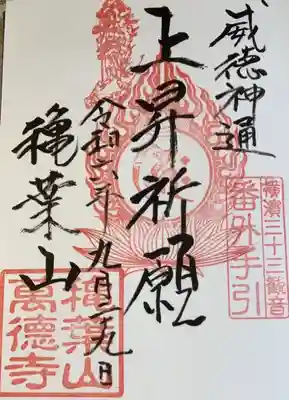 威徳神通
横濱三十三観音
番外手引
上昇祈願
令和六年九月二十九日
穐葉山
穐葉山
萬徳寺